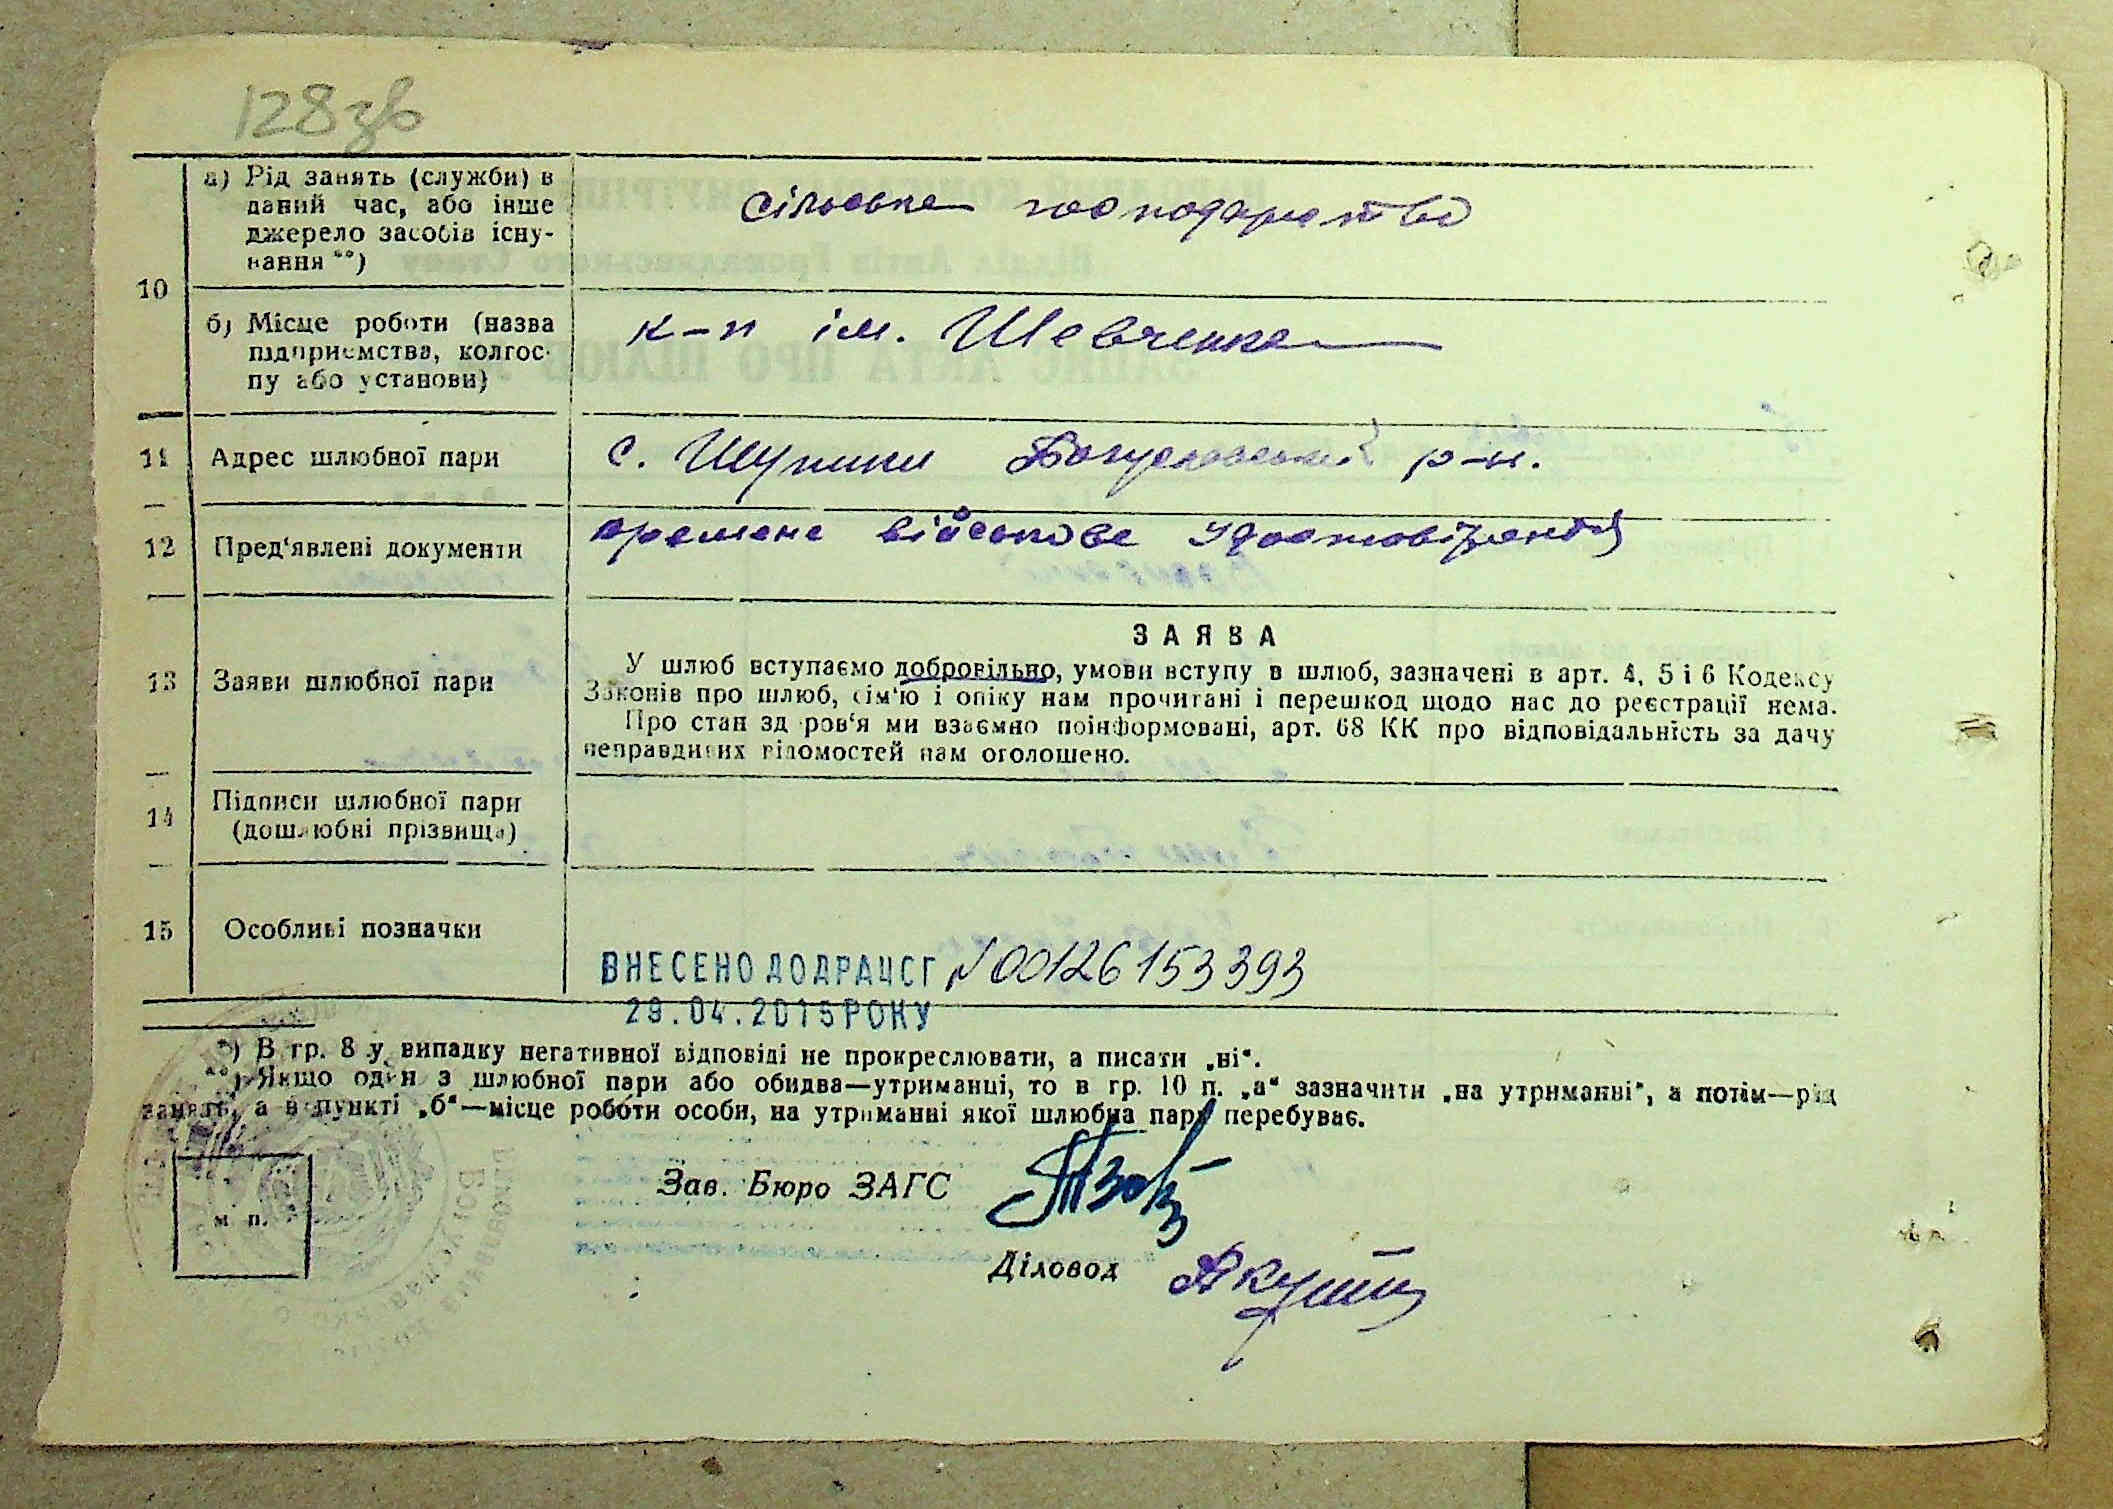 128зв
10
а) Рід занять (служби) в
даний час, або інше
джерело засобів існу-
вання **)
сільське господарство
б) Місце роботи (назва
підприємства, колгос-
пу або установи)
к-п ім. Шевченка
11
Адрес шлюбної пари
с. Шупики Богуславський р-н.
12
Пред'явлені документи
времене військове удостовірення
13
Заяви шлюбної пари
ЗАЯВА
У шлюб вступаємо добровільно, умови вступу в шлюб, зазначені в арт. 4, 5 і 6 Кодексу
Законів про шлюб, сім'ю і опіку нам прочитані і перешкод щодо нас до реєстрації нема.
Про стан здоров'я ми взаємно поінформовані, арт. 68 КК про відповідальність за дачу
неправдивих відомостей нам оголошено.
14
Підписи шлюбної пари
(дошлюбні прізвища)
15
Особливі позначки
ВНЕСЕНО ДО ДРАЦСГ № 00126153393
29.04.2015 РОКУ
*) В гр. 8 у випадку негативної відповіді не прокреслювати, а писати „ні“.
**) Якщо один з шлюбної пари або обидва—утриманці, то в гр. 10 п. „а“ зазначити „на утриманні“, а потім—рід
занять, а в пункті „б“—місце роботи особи, на утриманні якої шлюбна пара перебуває.
Зав. Бюро ЗАГС
м. п.
Діловод